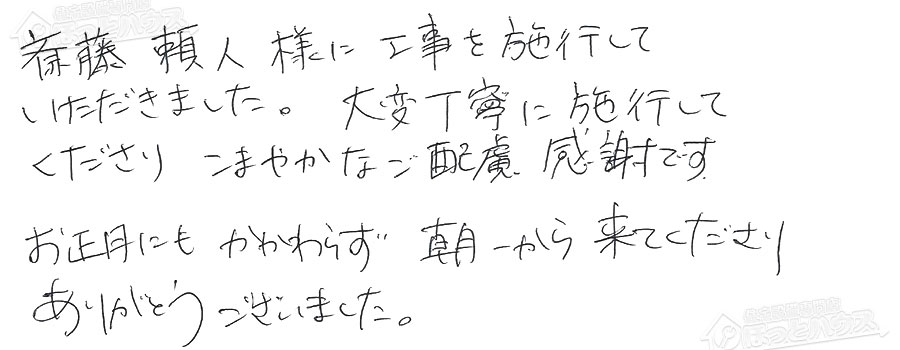 斎藤 頼人 様に 工事を施行して
いただきました。 大変丁寧に施行して
くださり こまやかなご配慮 感謝です
お正月にも かかわらず 朝一から来てくださり
ありがとうございました。
ほっとハウス
ほっとハウス